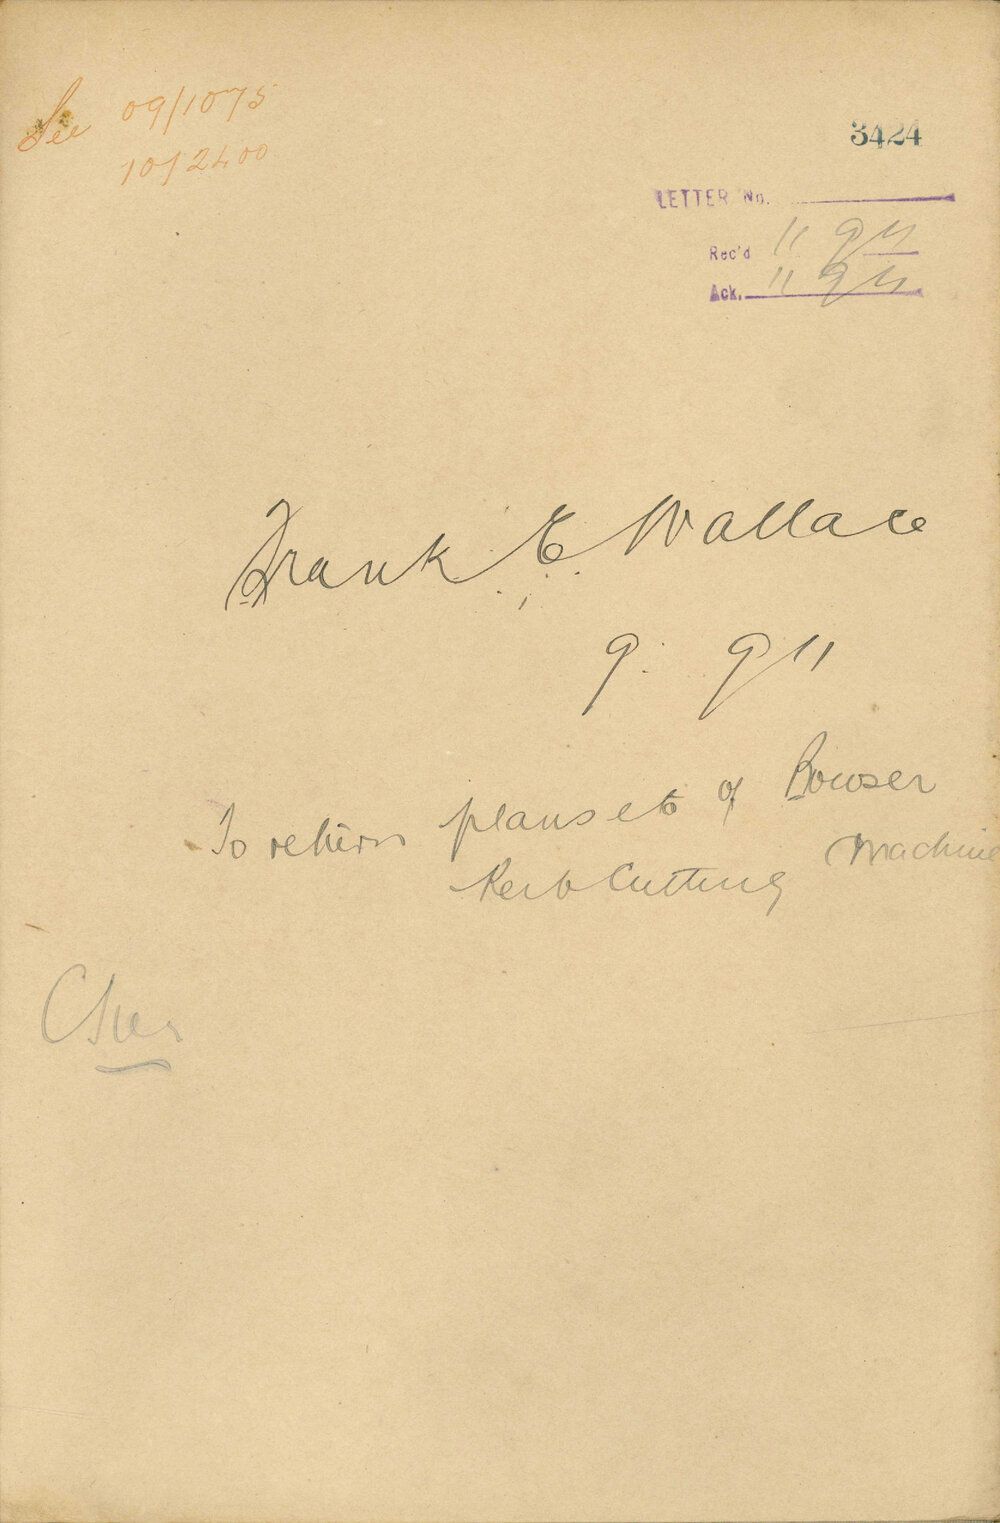 See 09/1075
10/2400
3424
LETTER No.
Rec'd 11 9 11
Ack. 11 9 11
Frank E Wallace
9. 9 11
To return plans etc of Bowser
Kerb Cutting Machine